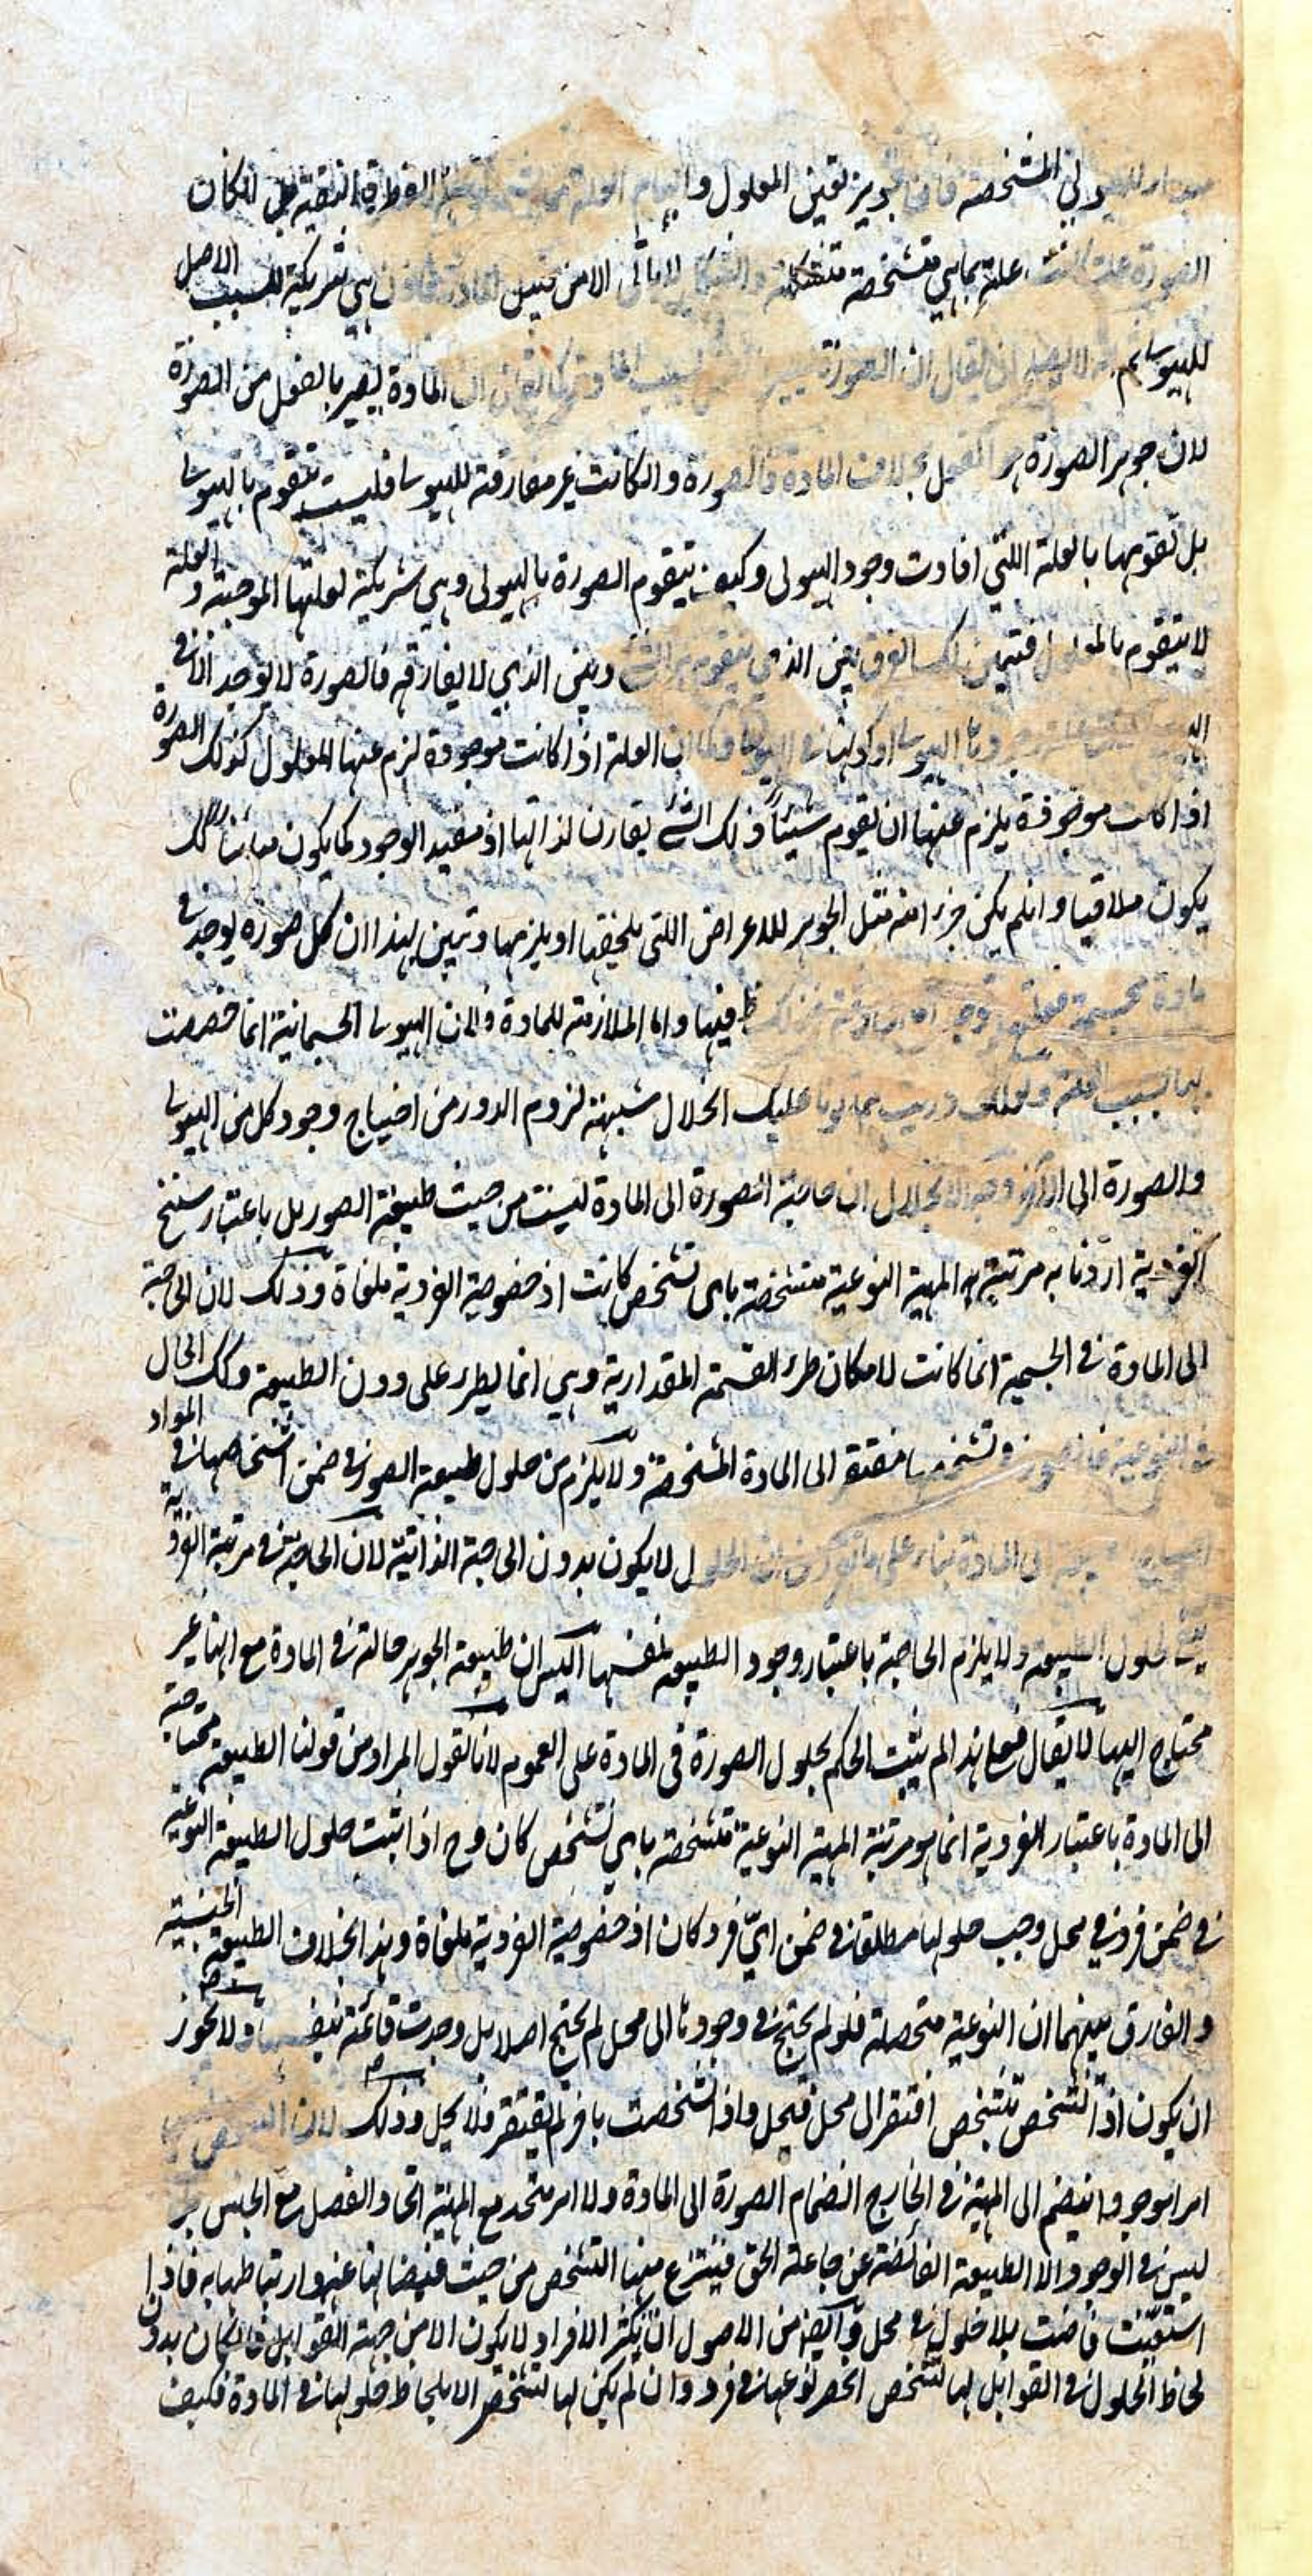 الهيولى المشخصة فان تجويز تعين المعلول وابهام العلة الفطرة النقية بل لو كان
الصورة علة كانت علة بما هي متشخصة متشكلة والشكل لا يتأتى الا من قبيل المادة فاذن هي شريكة للسبب الاصل
للهيولى ثم لا يصلح ان يقال ان الصورة بسبب المادة كما يقال ان المادة يصير بالفعل من الصورة
لان جوهر الصورة هو الفعل بخلاف المادة فالصورة وان كانت غير مفارقة للهيولى فليست تتقوم بالهيولى
بل تقومها بالعلة اللتي افادت وجود الهيولى وكيف يتقوم الصورة بالهيولى وهي شريكة لعلتها الموجبة والعلة
لا يتقوم بالمعلول فتبين لك الفرق بين الذي يتقوم به الشئ وبين الذي لا يفارقه فالصورة لا يوجد الا في
الهيولى وجودها الهيولى او كونها في الهيولى وكما ان العلة اذا كانت موجودة لزم عنها المعلول كذلك الصورة
اذا كانت موجودة يلزم عنها ان يقوم شيئاً وذلك الشئ يقارن لذاتها اذ مفيد الوجود كما يكون مبائنا كك
يكون ملاقيا وانلم يكن جزء امنه مثل الجوهر للاعراض اللتي يلحقها او يلزمها وتبين بهذا ان كل صورة يوجد في
مادة مجسمة فبعلة فيها واما الملازمة للمادة فلان الهيولى الجسمانية انما خصصت
بها بسبب العلة ولعلك دريت بما تلونا عليك انحلال شبهة لزوم الدور من احتياج وجود كل من الهيولى
والصورة الى الآخر وجه الانحلال ان حاجة الصورة الى المادة ليست من حيث طبيعة الصور بل باعتبار سنخ
الفردية اردنا به مرتبة المهية النوعية متشخصة باى تشخص كانت اذ خصوصية الفردية ملغاة وذلك لان الحاجة
الى المادة في الجسمية انما كانت لامكان طرء القسمة المقدارية وهي انما يطرء على دون الطبيعة وكك الحال
في النوعية فالصورة في تشخصها مفتقرة الى المادة المشخصة ولا يلزم من حلول طبيعة الصور في ضمن اشخاصها في المواد
احتياج الطبيعة الى المادة بناء على ما تقرر من ان الحلول لا يكون بدون الحاجة الذاتية لان الحاجة في مرتبة الفردية
حلول الطبيعة ولا يلزم الحاجة باعتبار وجود الطبيعة بنفسها اليس ان طبيعة الجوهر حالة في المادة مع انها غير
محتاج اليها لا يقال فعلى هذا لم يثبت الحكم بحلول الصورة في المادة على العموم لانا نقول المراد من قولنا الطبيعة محتاجة
الى المادة باعتبار الفردية انما هو مرتبة المهية النوعية متشخصة باي تشخص كان وح اذا ثبت حلول الطبيعة النوعية
في ضمن فرد في محل وجب حلولها مطلقا في ضمن ايّ فرد كان اذ خصوصية الفردية ملغاة وهذا بخلاف الطبيعة الجنسية
والفارق بينهما ان النوعية متحصلة فلو لم يحتج في وجودها الى محل لم يحتج اصلا بل وجدت قائمة بنفسها ولا يجوز
ان يكون اذا تشخص بتشخص افتقر الى محل فيحل واذا تشخصت بآخر لم يفتقر فلا يحل وذلك لان التشخص ليس
امرا موجودا ينضم الى المهية في الخارج انضمام الصورة الى المادة ولا امر متحد مع المهية اتحاد الفصل مع الجنس بل
ليس في الوجود الا الطبيعة الفائضة عن جاعلة الحق فينتزع منها التشخص من حيث فيضانها عنه وارتباطها به فاذا
استغنيت فاضت بلا حلول في محل وآيضا من الاصول ان تكثر الافراد لا يكون الا من جهة القوابل فان كان بدون
لحاظ الحلول في القوابل لها تشخص انحصر نوعها في فرد وان لم يكن لها تشخص الا بلحاظ حلولها في المادة فكيف